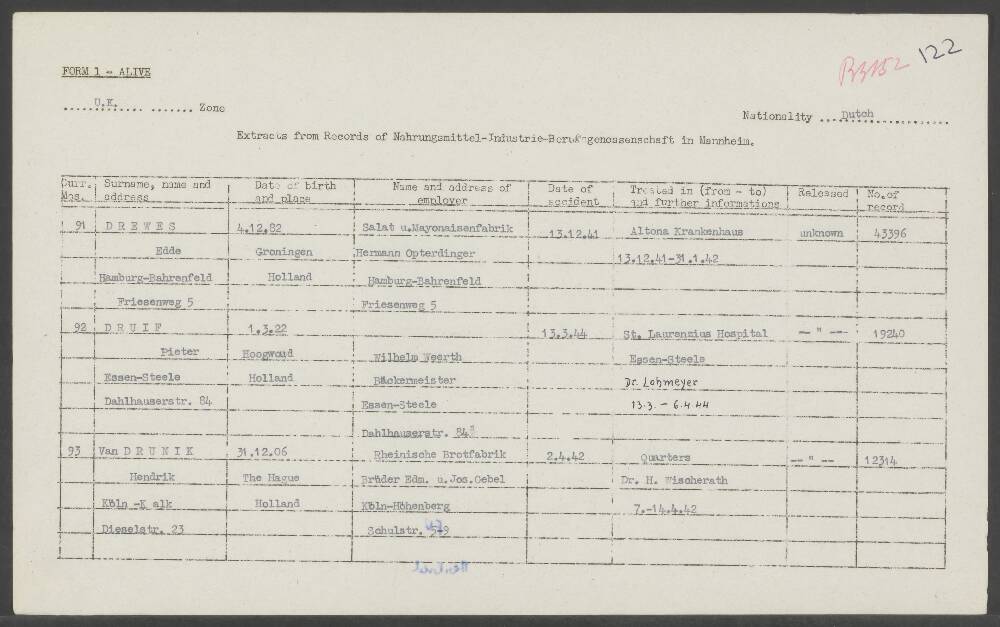 122
FORM 1 - ALIVE
U.K. Zone
Nationality Dutch
Extracts from Records of Nahrungsmittel-Industrie-Berufsgenossenschaft in Mannheim.
Curr. Nos. | Surname, name and address | Date of birth and place | Name and address of employer | Date of accident | Treated in (from - to) and further informations | Released | No. of record
91 | D R E W E S | 4.12.82 | Salat u.Mayonaisenfabrik | 13.12.41 | Altona Krankenhaus | unknown | 43396
Edde | Groningen | Hermann Opterdinger | 13.12.41-31.1.42
Hamburg-Bahrenfeld | Holland | Hamburg-Bahrenfeld
Friesenweg 5 | Friesenweg 5
92 | D R U I F | 1.3.22 | 13.3.44 | St. Laurenzius Hospital | — " — | 19240
Pieter | Hoogwoud | Wilhelm Weerth | Essen-Steele
Essen-Steele | Holland | Bäckermeister | Dr. Lohmeyer
Dahlhauserstr. 84 | Essen-Steele | 13.3. - 6.4.44
Dahlhauserstr. 84
93 | Van D R U N I K | 31.12.06 | Rheinische Brotfabrik | 2.4.42 | Quarters | — " — | 12314
Hendrik | The Hague | Brüder Edm. u.Jos.Oebel | Dr. H. Wischerath
Köln -K alk | Holland | Köln-Höhenberg | 7.-14.4.42
Dieselstr. 23 | Schulstr.